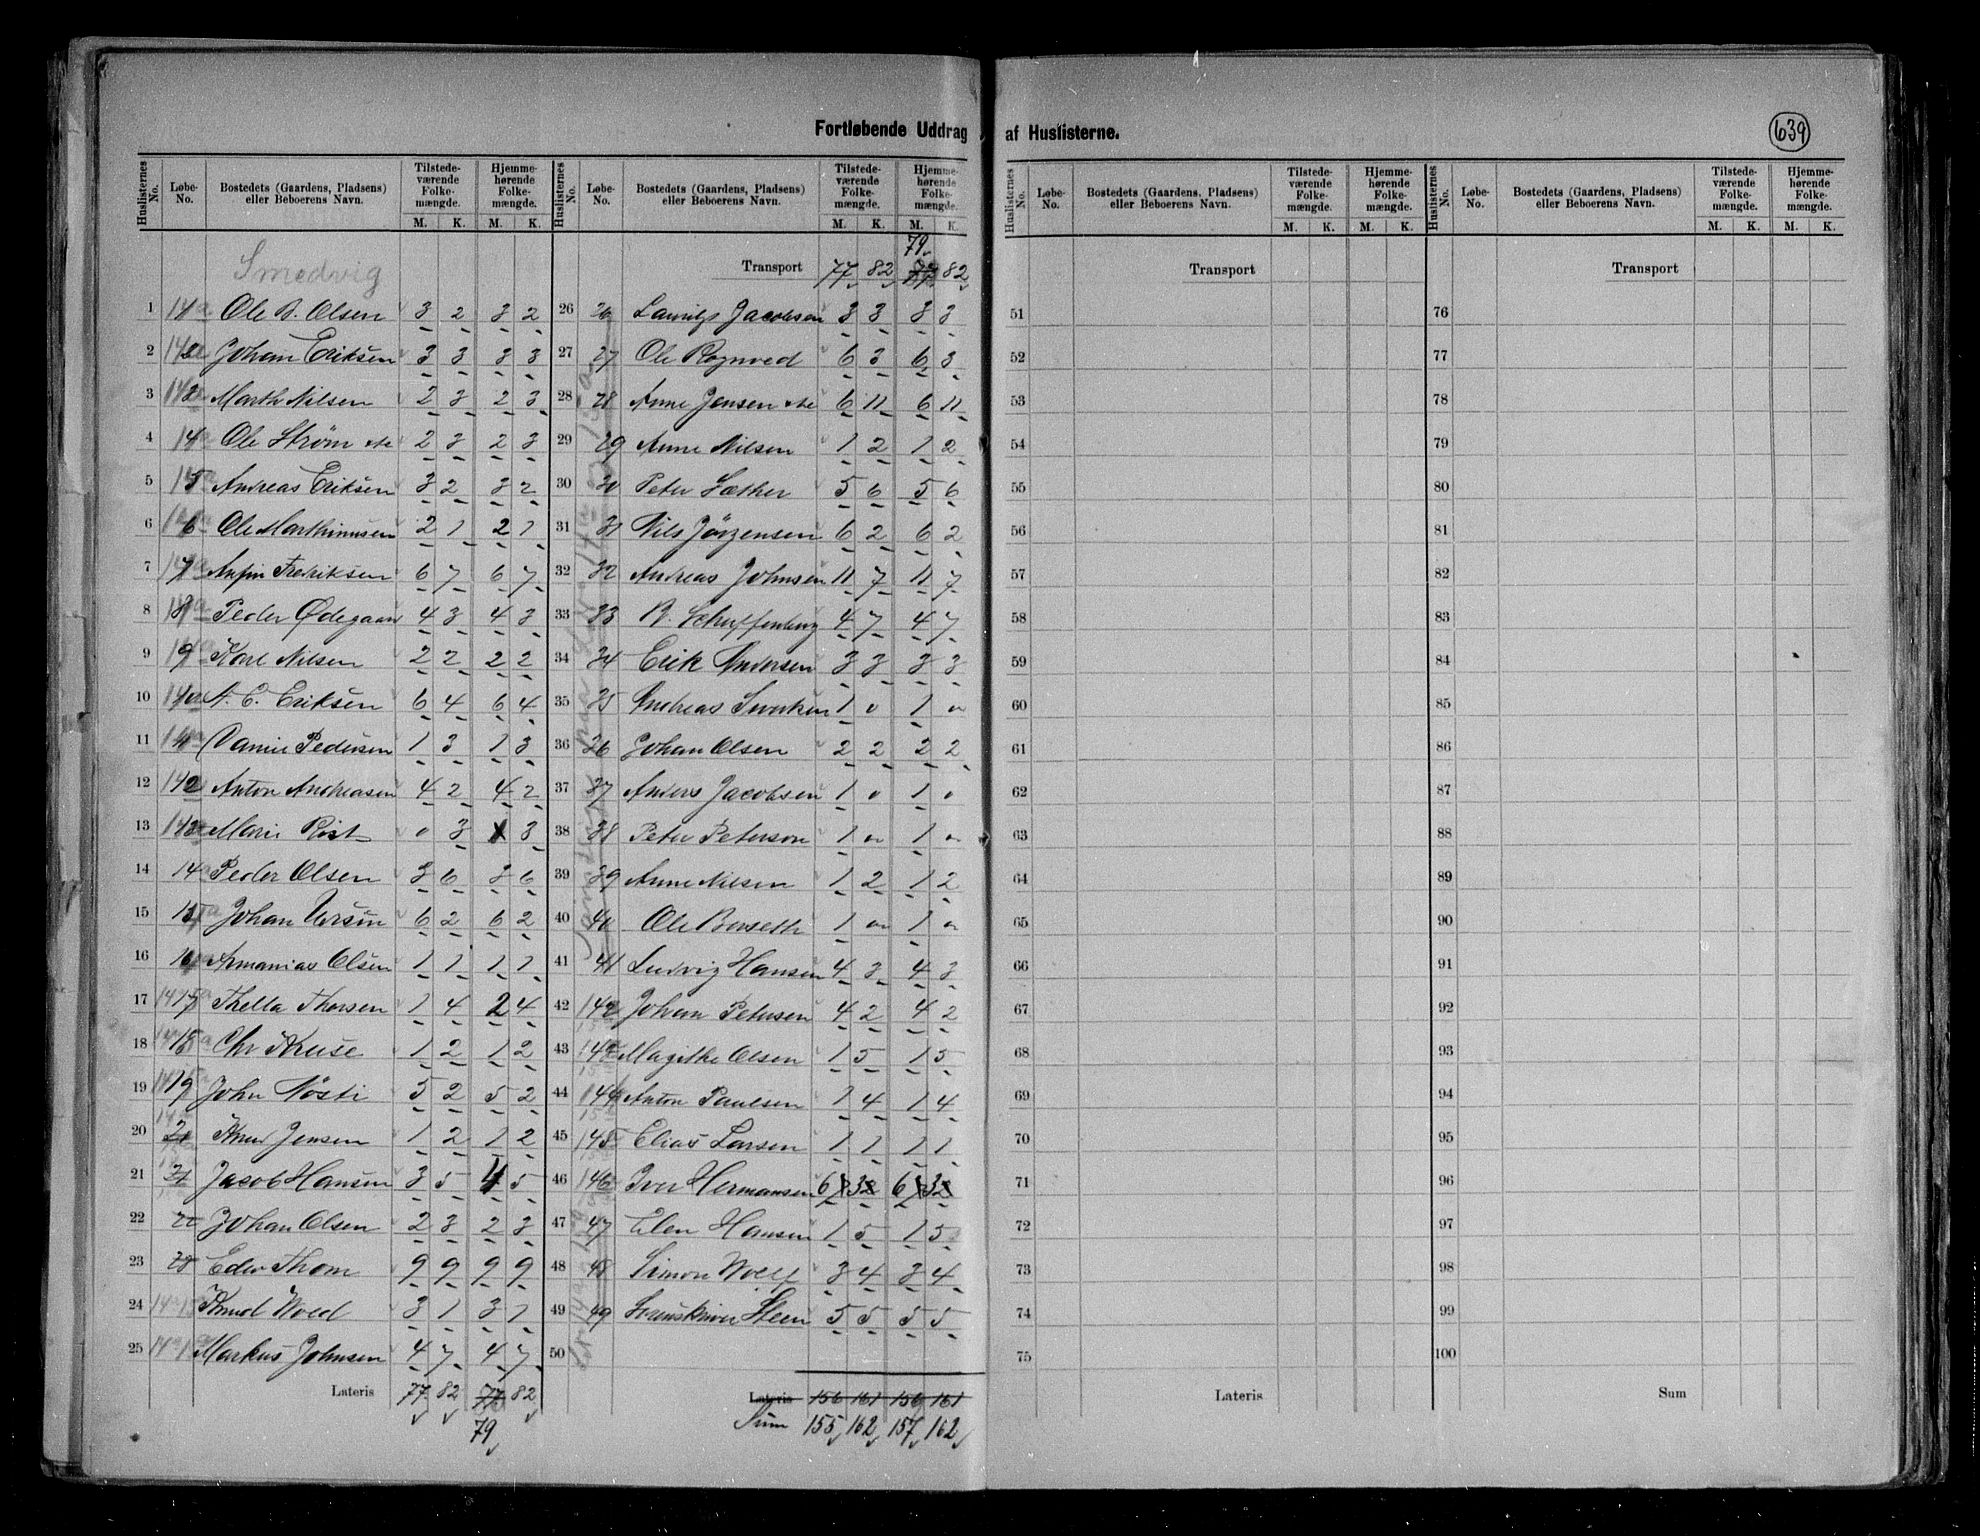 Fortløbende Uddrag af Huslisterne.
639
Huslisternes No. Løbe-No. Bostedets (Gaardens, Pladsens) eller Beboerens Navn. Tilstedeværende Folkemængde. M. K. Hjemmehørende Folkemængde. M. K.
Smedvig
1 Ole B. Olsen 3 2 3 2
2 Johan Eriksen 3 3 3 3
3 Marth Nilsen 2 3 2 3
4 Ole Strøm 2 3 2 3
5 Andreas Eriksen 3 2 3 2
6 Ole Marthinusen 2 1 2 1
7 Anfin Fredriksen 6 7 6 7
8 Peder Ødegaard 4 3 4 3
9 Karl Nilsen 2 2 2 2
10 A. C. Eriksen 6 4 6 4
11 Pedersen 1 3 1 3
12 Anton Andreasen 4 2 4 2
13 Marie Rist 0 3 3
14 Peder Olsen 3 6 3 6
15 Johan Iversen 6 2 6 2
16 Amanias Olsen 1 1 1 1
17 Thella Thorsen 1 4 2 4
18 Chr Kruse 1 2 1 2
19 John Nösti 5 2 5 2
20 Knud Jensen 1 2 1 2
21 Jacob Hansen 3 5 4 5
22 Johan Olsen 2 3 2 3
23 Edev Thom 9 9 9 9
24 Knud Wold 3 1 3 1
25 Markus Johnsen 4 7 4 7
Lateris 77 82 77 82
79
Huslisternes No. Løbe-No. Bostedets (Gaardens, Pladsens) eller Beboerens Navn. Tilstedeværende Folkemængde. M. K. Hjemmehørende Folkemængde. M. K.
79
Transport 77 82 77 82
26 26 Lauritz Jacobsen 3 3 3 3
27 27 Ole Rognved 6 3 6 3
28 28 Anne Jensen 6 11 6 11
29 29 Anne Nilsen 1 2 1 2
30 30 Peter Sæther 5 6 5 6
31 31 Nils Jörgensen 6 2 6 2
32 32 Andreas Johnsen 11 7 11 7
33 33 B. Schuffenberg 4 7 4 7
34 34 Erik Andersen 3 3 3 3
35 35 Andreas 1 0 1 0
36 36 Johan Olsen 2 2 2 2
37 37 Anders Jacobsen 1 0 1 0
38 38 Peter Peterson 1 0 1 0
39 39 Anne Nilsen 1 2 1 2
40 40 Ole Berseth 1 0 1 0
41 41 Ludvig Hansen 4 3 4 3
42 Johan Petersen 4 2 4 2
43 Magithe Olsen 1 5 1 5
44 Anton Paulsen 1 4 1 4
45 Elias Larsen 1 1 1 1
46 Iver Hermansen 6 3 6 3
47 47 Elen Hansen 1 5 1 5
48 48 Simon Wolf 3 4 3 4
49 49 Steen 5 5 5 5
50
Lateris 156 161 156 161
Sum 155 162 157 162
Huslisternes No. Løbe-No. Bostedets (Gaardens, Pladsens) eller Beboerens Navn. Tilstedeværende Folkemængde. M. K. Hjemmehørende Folkemængde. M. K.
Transport
51
52
53
54
55
56
57
58
59
60
61
62
63
64
65
66
67
68
69
70
71
72
73
74
75
Lateris
Huslisternes No. Løbe-No. Bostedets (Gaardens, Pladsens) eller Beboerens Navn. Tilstedeværende Folkemængde. M. K. Hjemmehørende Folkemængde. M. K.
Transport
76
77
78
79
80
81
82
83
84
85
86
87
88
89
90
91
92
93
94
95
96
97
98
99
100
Sum